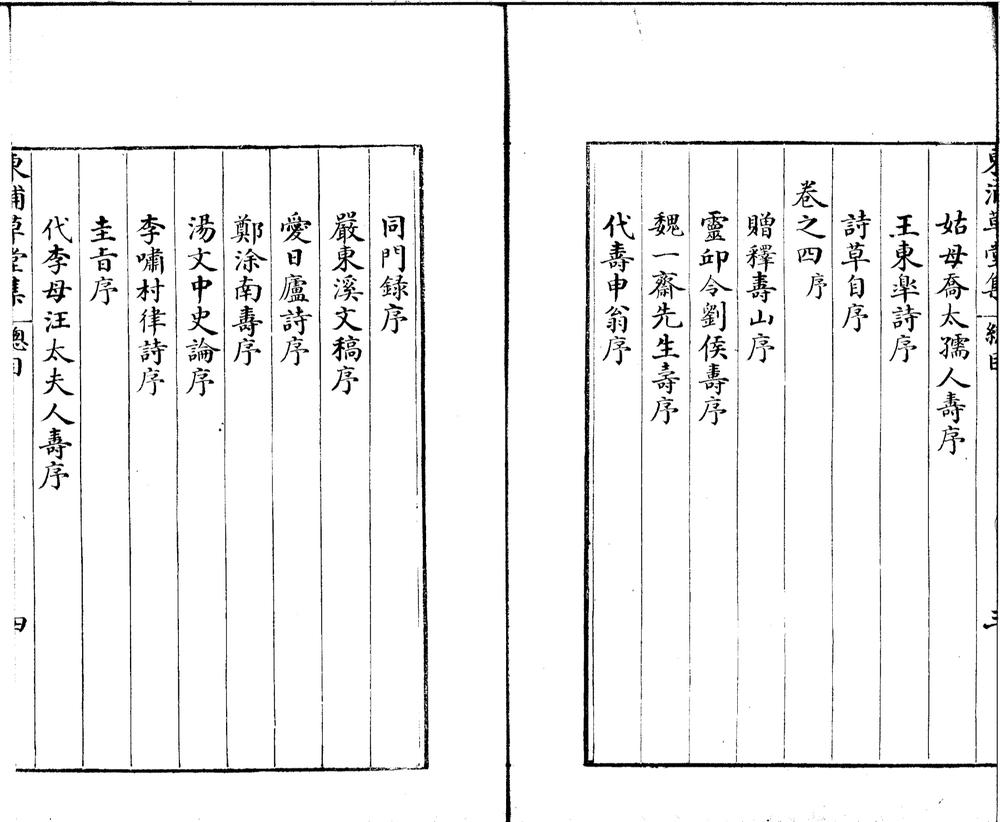 東浦草堂集 總目 三
姑母喬太孺人壽序
王東臯詩序
詩草自序
卷之四序
贈釋壽山序
靈邱令劉侯壽序
魏一齋先生壽序
代壽申翁序
同門録序
嚴東溪文稿序
愛日廬詩序
鄭涂南壽序
湯文中史論序
李嘯村律詩序
圭旨序
代李母汪太夫人壽序
東浦草堂集 總目 四